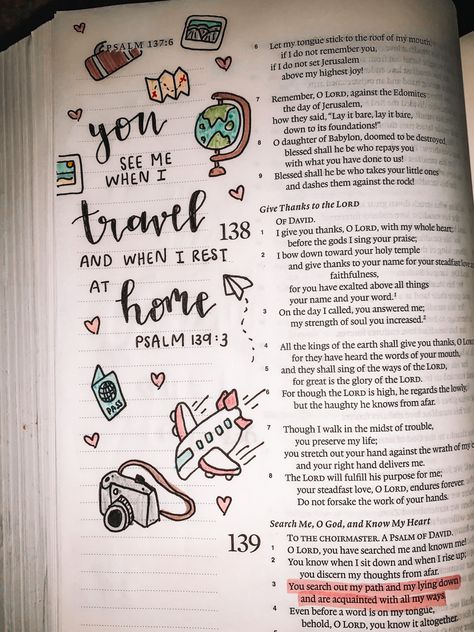 PSALM 137:6
you
SEE ME
WHEN I
travel
AND WHEN I REST
AT home
PSALM 139:3
PASS
6 Let my tongue stick to the roof of my mouth,
if I do not remember you,
if I do not set Jerusalem
above my highest joy!
7 Remember, O LORD, against the Edomites
the day of Jerusalem,
how they said, “Lay it bare, lay it bare,
down to its foundations!”
8 O daughter of Babylon, doomed to be destroyed,
blessed shall he be who repays you
with what you have done to us!
9 Blessed shall he be who takes your little ones
and dashes them against the rock!
Give Thanks to the LORD
138 OF DAVID.
1 I give you thanks, O LORD, with my whole heart;
before the gods I sing your praise;
2 I bow down toward your holy temple
and give thanks to your name for your steadfast love
faithfulness,
for you have exalted above all things
your name and your word.1
3 On the day I called, you answered me;
my strength of soul you increased.2
4 All the kings of the earth shall give you thanks, O
for they have heard the words of your mouth,
5 and they shall sing of the ways of the LORD,
for great is the glory of the LORD.
6 For though the LORD is high, he regards the lowly,
but the haughty he knows from afar.
7 Though I walk in the midst of trouble,
you preserve my life;
you stretch out your hand against the wrath of
and your right hand delivers me.
8 The LORD will fulfill his purpose for me;
your steadfast love, O LORD, endures forever.
Do not forsake the work of your hands.
Search Me, O God, and Know My Heart
139 TO THE CHOIRMASTER. A PSALM OF DAVID.
1 O LORD, you have searched me and known me!
2 You know when I sit down and when I rise up;
you discern my thoughts from afar.
3 You search out my path and my lying down
and are acquainted with all my ways.
4 Even before a word is on my tongue,
behold, O LORD, you know it altogether.